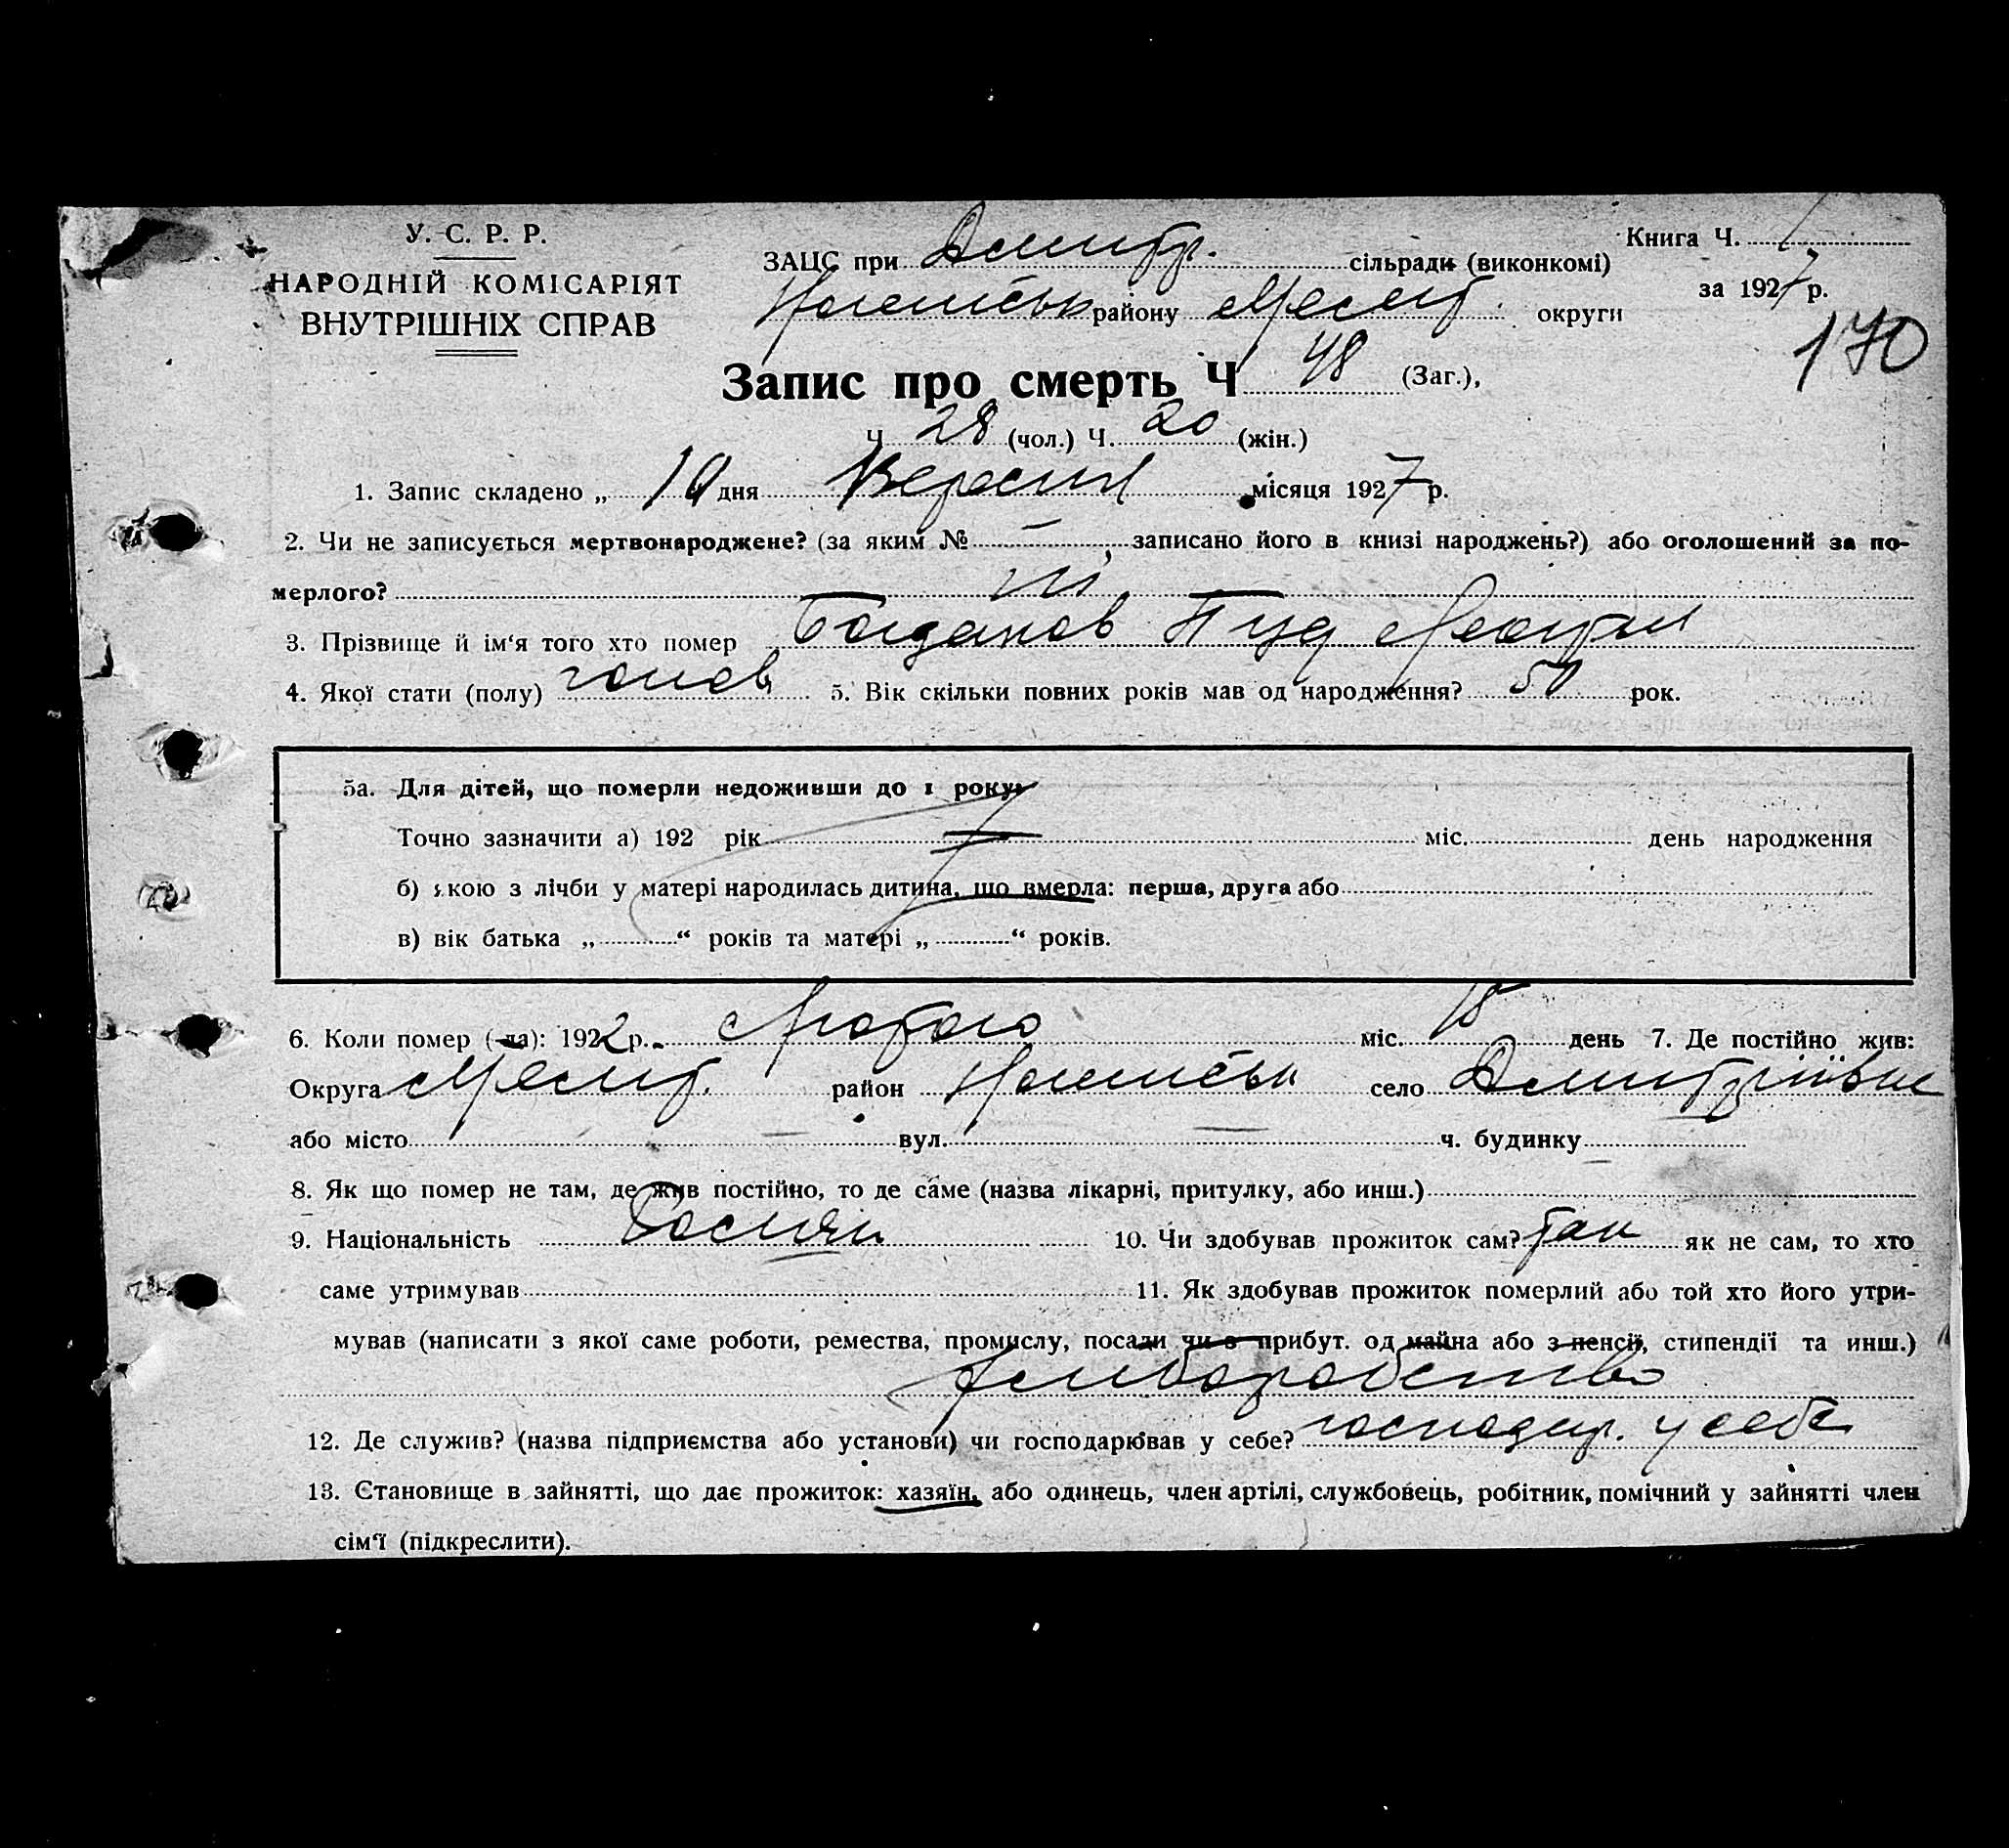 У. С. Р. Р.
НАРОДНІЙ КОМІСАРІЯТ
ВНУТРІШНІХ СПРАВ
Книга Ч.
за 1927 р.
170
ЗАЦС при Дмитр. сільради (виконкомі)
району округи
Запис про смерть Ч 48 (Заг.),
Ч 28 (чол.) Ч. 20 (жін.)
1. Запис складено „ дня Вересня місяця 1927 р.
2. Чи не записується мертвонароджене? (за яким № , записано його в книзі народжень?) або оголошений за по-
мерлого?
3. Прізвище й ім‘я того хто помер Богданов Пуд
4. Якої стати (полу) чолов 5. Вік скільки повних років мав од народження? 50 рок.
5а. Для дітей, що померли недоживши до 1 року:
Точно зазначити а) 192 рік міс. день народження
б) якою з лічби у матері народилась дитина, що вмерла: перша, друга або
в) вік батька „ “ років та матері „ “ років.
6. Коли помер (-ла): 1922 р. Лютого міс. 18 день 7. Де постійно жив:
Округа район село Дмитріївка
або місто вул. ч. будинку
8. Як що помер не там, де жив постійно, то де саме (назва лікарні, притулку, або инш.)
9. Національність Росіян 10. Чи здобував прожиток сам? так як не сам, то хто
саме утримував 11. Як здобував прожиток померлий або той хто його утри-
мував (написати з якої саме роботи, ремества, промислу, посади чи з прибут. од майна або з пенсії, стипендії та инш.)
хліборобство
12. Де служив? (назва підприємства або установи) чи господарював у себе? господар. у себе
13. Становище в зайнятті, що дає прожиток: хазяїн, або одинець, член артілі, службовець, робітник, помічний у зайнятті член
сім‘ї (підкреслити).